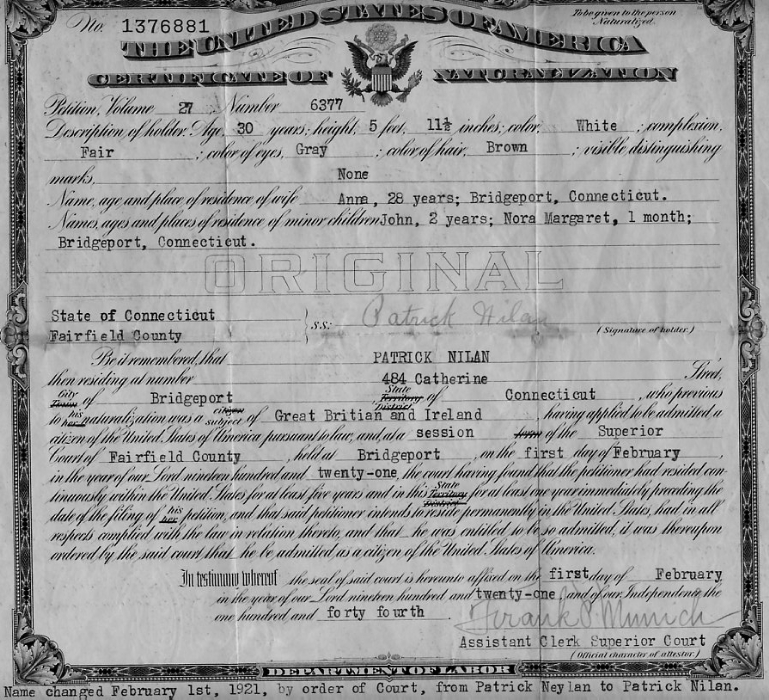 To be given to the person
Naturalized.
No. 1376881
THE UNITED STATES OF AMERICA
CERTIFICATE OF NATURALIZATION
Petition, Volume 27 , Number 6377
Description of holder: Age, 30 years; height, 5 feet, 11½ inches; color, White ; complexion,
Fair ; color of eyes, Gray ; color of hair, Brown ; visible distinguishing
marks, None
Name, age and place of residence of wife Anna, 28 years; Bridgeport, Connecticut.
Names, ages and places of residence of minor children John, 2 years; Nora Margaret, 1 month;
Bridgeport, Connecticut.
ORIGINAL
State of Connecticut
Fairfield County } s.s: Patrick Nilan
(Signature of holder.)
Be it remembered, that PATRICK NILAN
then residing at number 484 Catherine Street,
City Town of Bridgeport , State Territory District of Connecticut , who previous
to his her naturalization was a citizen subject of Great Britian and Ireland , having applied to be admitted a
citizen of the United States of America pursuant to law, and at a session term of the Superior
Court of Fairfield County , held at Bridgeport , on the first day of February ,
in the year of our Lord nineteen hundred and twenty-one, the court having found that the petitioner had resided con-
tinuously within the United States for at least five years and in this State Territory District for at least one year immediately preceding the
date of the filing of his her petition, and that said petitioner intends to reside permanently in the United States, had in all
respects complied with the law in relation thereto, and that he was entitled to be so admitted, it was thereupon
ordered by the said court that he be admitted as a citizen of the United States of America.
In testimony whereof the seal of said court is hereunto affixed on the first day of February
in the year of our Lord nineteen hundred and twenty-one, and of our Independence the
one hundred and forty fourth .
Frank S Munich
Assistant Clerk Superior Court
(Official character of attestor.)
DEPARTMENT OF LABOR
Name changed February 1st, 1921, by order of Court, from Patrick Neylan to Patrick Nilan.